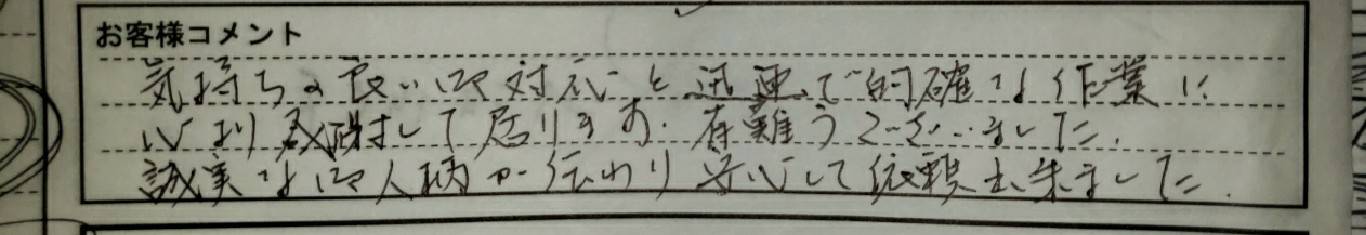 お客様コメント
気持ちの良い御対応と迅速で的確な作業に
心より感謝して居ります。有難うございました。
誠実な御人柄が伝わり安心して依頼出来ました。